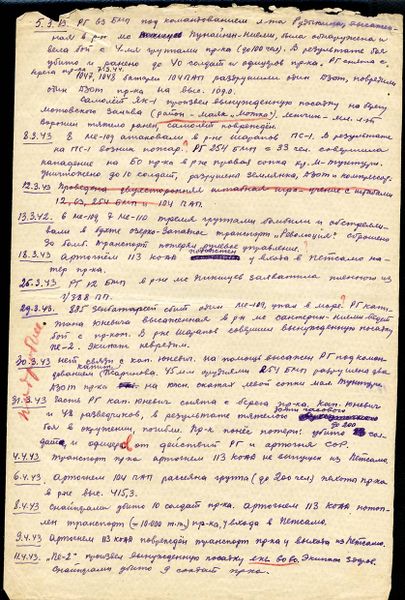 5.3.43. РГ 63 БМП под командованием л-та высажен-
ная в р-не м-ка Пунайнен-Ниеми, была обнаружена и
вела бой с 4-мя группами пр-ка (до 100 чел). В результате боя
убито и ранено до 40 солдат и офицеров пр-ка. РГ снята с
берега пр-ка 7.3.43.
1047, 1048 батареи 104 ПАП разрушили один ДЗОТ, повредили
один ДЗОТ пр-ка на выс. 109.0.
Самолёт Як-1 произвёл вынужденную посадку на берегу
Мотовского залива (район - маяк "Мотка"). Летчик - мл. л-т
Воронин тяжело ранен, самолёт повреждён.
8.3.43 8 Ме-109 атаковали в р-не Шарапов ПС-1. В результате
на ПС-1 возник пожар. ? РГ 254 БМП = 33 чел. совершила
нападение на БО пр-ка в р-не правая сопка хр. М-Тунтури.
Уничтожено до 10 солдат, разрушена землянка, ДЗОТ и компрессор.
12.3.43 Проведена двухсторонняя штабная игра-учение с штабами
12, 63, 254 БМП и 104 ПАП.
13.3.42. 6 Ме-109, 7 Ме-110 тремя группами бомбили и обстреля-
вали в бухте Озерко-Западное транспорт "Революция". Сброшено
30 бомб. Транспорт потерял рулевое управление.
18.3.43 артогнём 113 КОАД потоплен у входа в Петсамо ка-
тер пр-ка.
25.3.43 РГ 12 БМП в р-не Пикшуев захватила пленного из
1/388 ПП.
29.3.43. 225 ЗенБатареей сбит один Ме-109, упал в море. ? РГ капи-
тана Юневича высаженная в р-не м-ка Сантерин-Ниеми ведёт
бой с пр-ком. В р-не Шарапов совершил вынужденную посадку
Пе-2. Экипаж невредим.
30.3.43 Нет связи с кап. Юневич. На помощь высажен РГ под коман-
дованием капит. Толарикова. 45 м/м орудиями 254 БМП разрушено два
ДЗОТ пр-ка на южн. скатах левой сопки мал. Тунтури.
подробнее
31.3.43 Часть РГ кап. Юневич снята с берега пр-ка. Кап. Юневич
и 42 разведчиков, в результате тяжелого
боя в окружении, погибли. Пр-к понёс потери: убито до 200 сол-
дат и офицеров от действий РГ и артогня СОР.
4.4.43 Транспорт пр-ка артогнем 113 КОАД не выпущен из Петсамо.
6.4.43 артогнём 104 ПАП рассеяна группа (до 200 чел) пехоты пр-ка
в р-не выс. 415,3.
8.4.43 Снайперами убито 10 солдат пр-ка. артогнем 113 КОАД потоп-
лен транспорт (= 10.000 т.т.) пр-ка, у входа в Петсамо.
9.4.43 артогнем 113 КОАД повреждён транспорт пр-ка у выхода из Петсамо.
11.4.43. "Пе-2" произвёл вынужденную посадку Экипаж здоров.
Снайперами убито 9 солдат пр-ка.